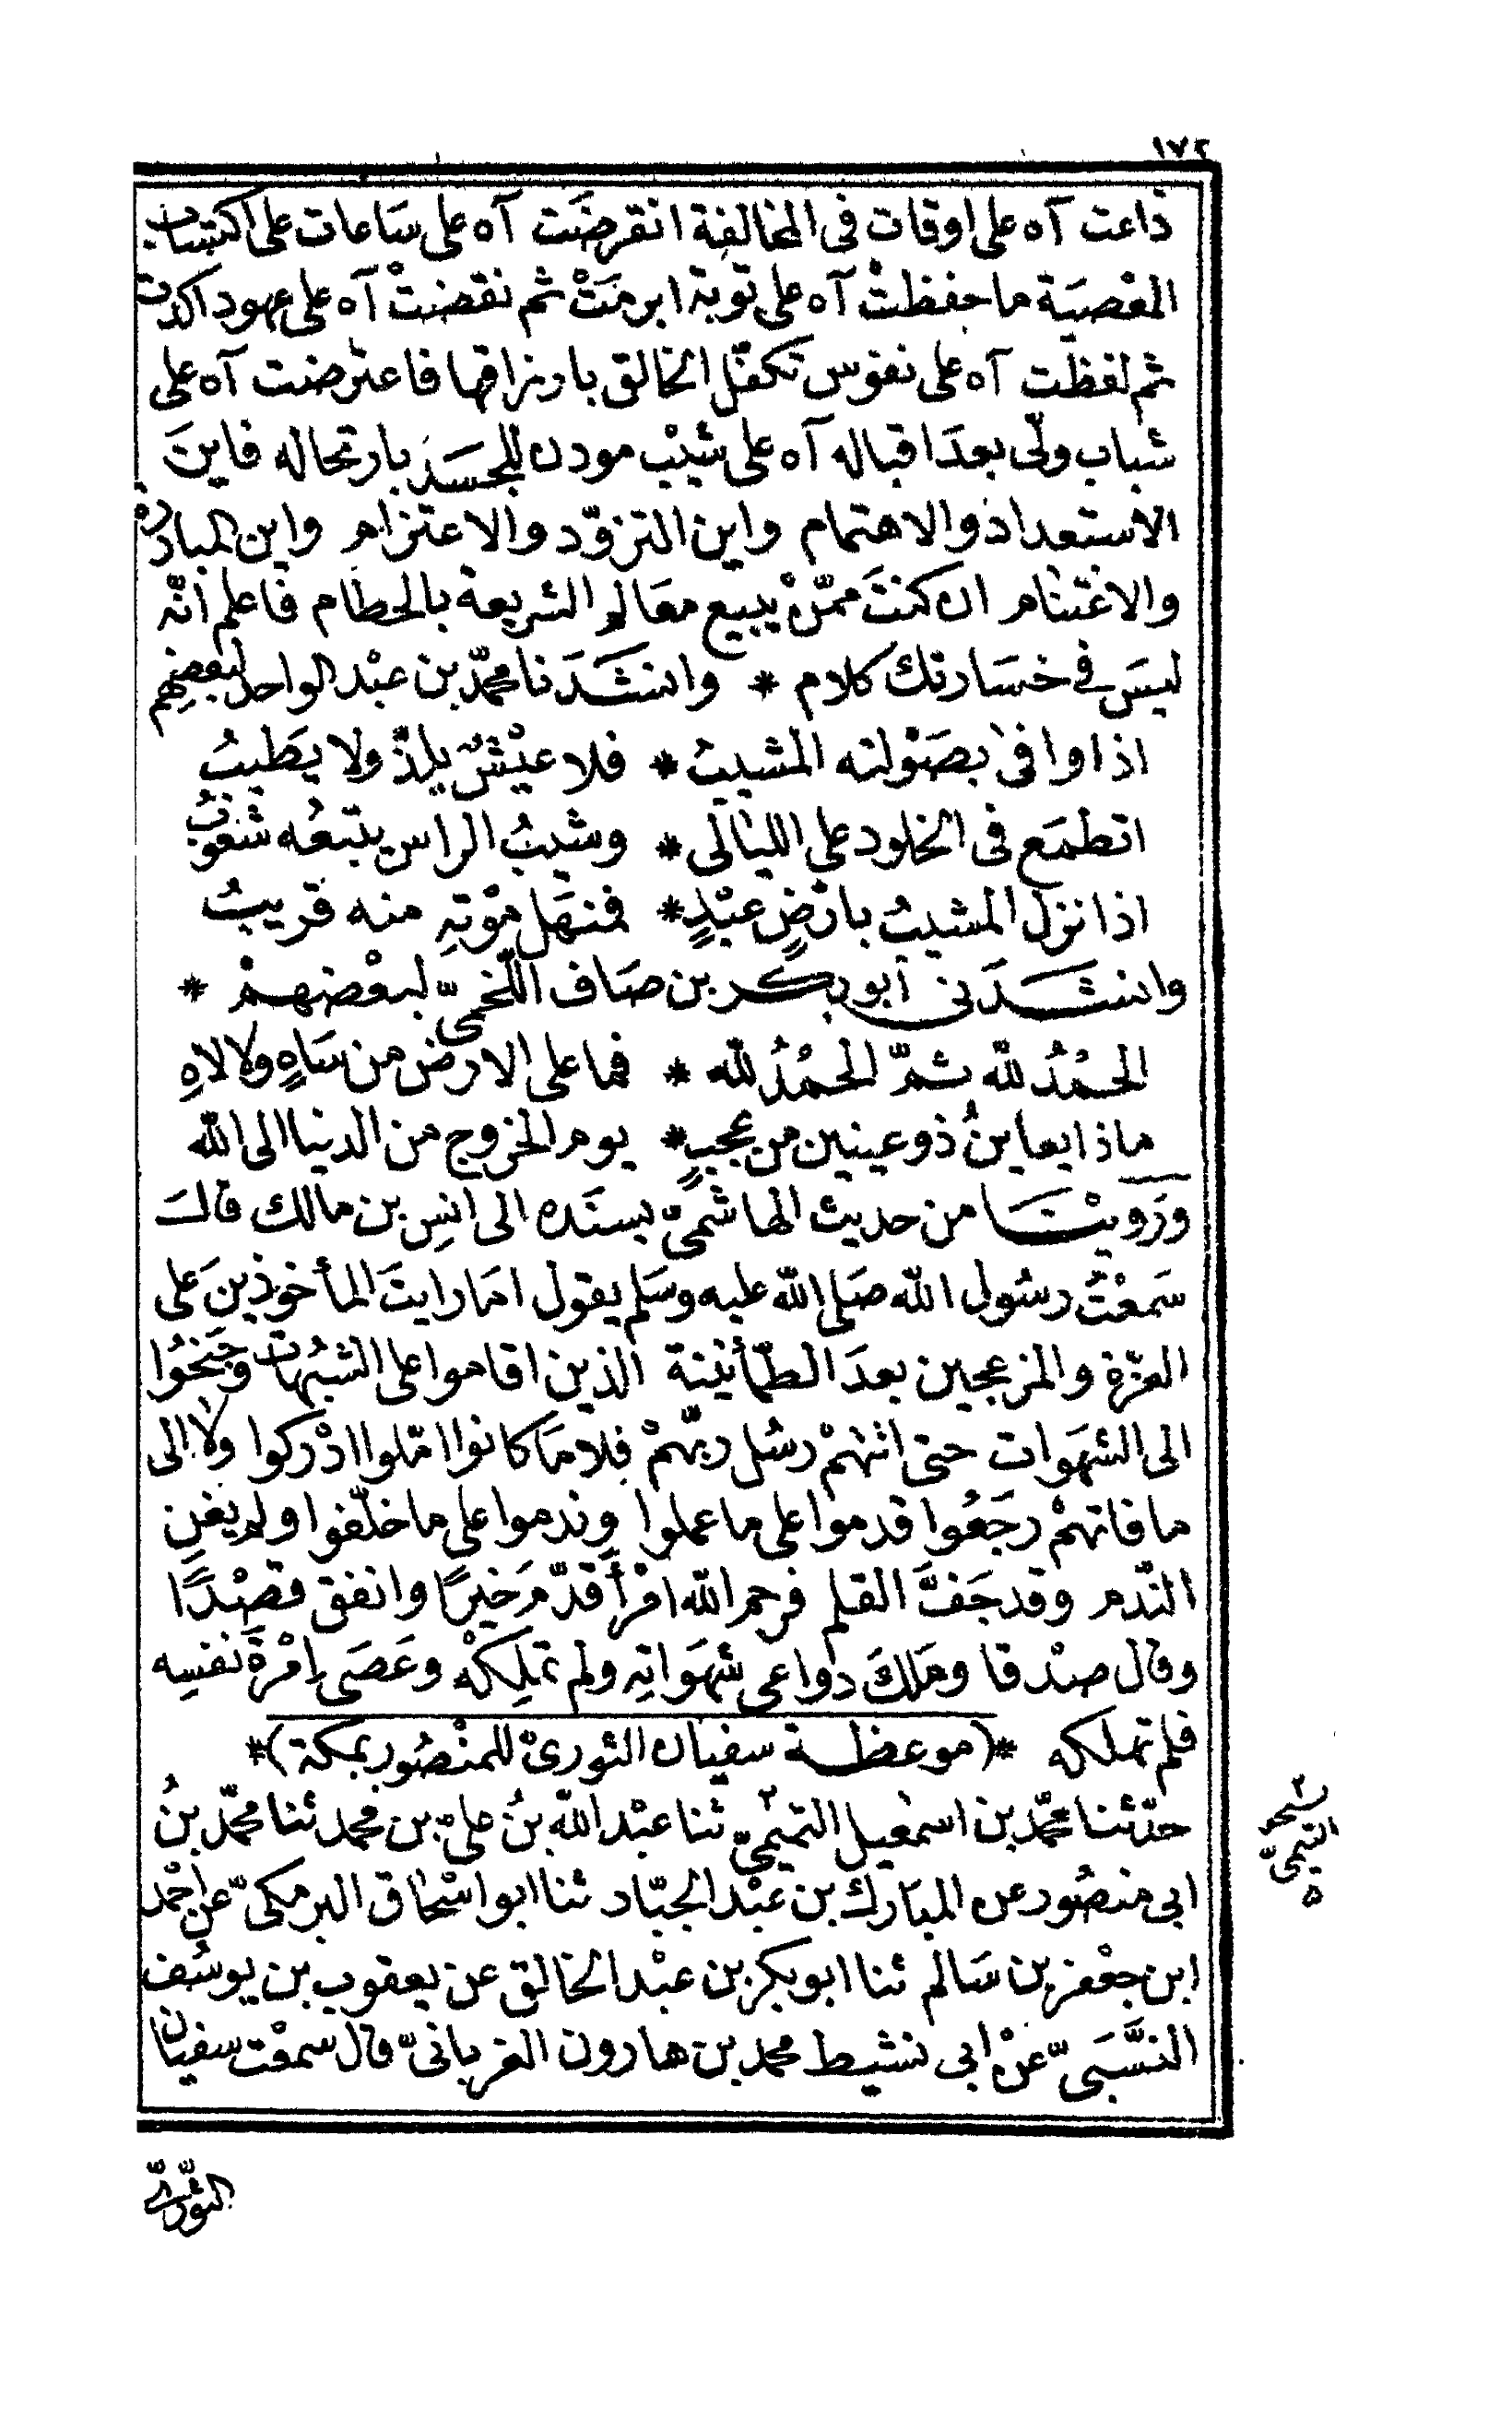 ١٧٢
ذاعت آه على اوقات فى المخالفة انقرضَت آه على سَاعات على اكتساب
المعْصيَة ما حفظتْ آه على توبة ابرمَتْ ثم نقضتْ آه على عهود اكدت
ثم لفظت آه على نفوس تكفّل الخالق بارزاقها فاعترضت آه على
شباب ولّى بعدَ اقباله آه على شيْب موذن للجسَد بارتحاله فاينَ
الاستعداد والاهتمام واين التزوّد والاعتزام واين المبادرة
والاغتنام ان كنتَ ممّنْ يبيع معَالم الشريعة بالحطام فاعلم انّه
ليسَ فى خسَارتك كلام * وانشدَنا محمّد بن عبْد الواحد لبعضِهم
اذا وافى بصَوْلته المشيبُ * فلا عيْشٌ يلذّ ولا يَطيبُ
اتطمَع فى الخلود على الليالى * وشيبُ الراس يتبعُه شعُوبُ
اذا نزل المشيبُ بارْضِ عبْدٍ * فمنهَل موْتهِ منه قريبُ
وانشدَنى ابو بكر بن صَاف اللّخمىّ لبعْضهمْ *
الحمْدُ لله ثمّ الحمْدُ لله * فما على الارض من سَاهٍ ولا لاهِ
ماذا يعاينُ ذو عينين من عجبٍ * يوم الخروج من الدنيا الى الله
ورَويْنَا من حديث الهاشمىّ بسنَده الى انسِ بن مالك قالَ
سَمعْتُ رسُول الله صَلى الله عليه وسَلم يقول امَا رايتَ المأخوذينَ على
العزّة والمزعجين بعدَ الطّمأنينة الذين اقاموا على الشبُهات وجَنحُوا
الى الشهَوات حتى اتتهمْ رسُل ربّهمْ فلا مَا كانوا امّلوا ادْركوا ولا الى
ما فاتهمْ رجَعُوا قدموا على ما عملوا وندموا على ما خلّفوا ولم يغنِ
النّدم وقد جَفَّ القلم فرحم الله امْرأ قدّمَ خيرًا وانفق قصْدًا
وقال صدْقا ومَلكَ دواعى شهَواتهِ ولم تملِكهْ وعَصَى اِمْرةَ نفسِه
فلم تملكه *(موعظة سفيان الثورىّ للمنْصُور بمكة)*
حدّثنا محمّد بن اسمعيل التميمىّ٢ ثنا عبْد الله بنُ علىّ بن محمد ثنا محمّد بنُ
ابى منصُور عن المبَارك بن عبْد الجبّار ثنا ابو اسْحاق البرمكىّ عن احْمد
ابن جعْفر بن سَالم ثنا ابو بكر بن عبْد الخالق عن يعقوب بن يوسُف
النسَّبىّ عنْ ابى نشيط محمد بن هارون الفريابىّ قال سمعْت سفيان
٢ نسخه
التيمىّ
الثّورىّ